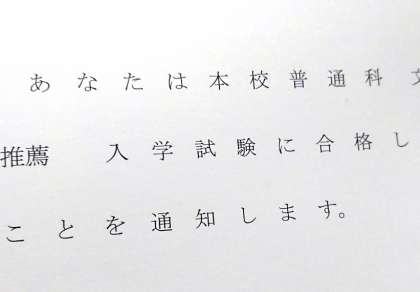 あなたは本校普通科文
推薦 入学試験に合格し
ことを通知します。